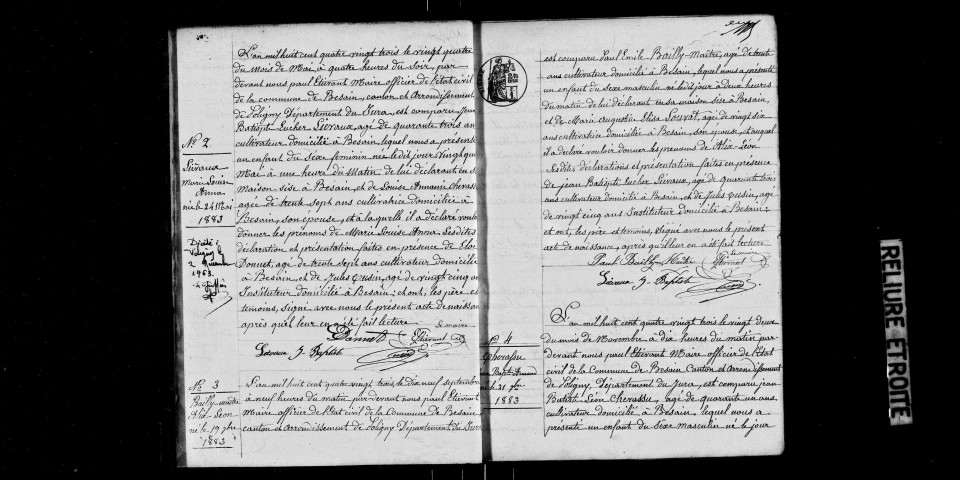 L'an mil huit cent quatre vingt trois le vingt quatre
du mois de Mai à quatre heures du soir, par
devant nous paul Etievant Maire officier de l'état civil
de la commune de Besain, canton et Arrondissement
de Poligny, Département du Jura, est comparu Jean
Baptiste Eucher Lievaux, agé de quarante trois ans
cultivateur domicilié à Besain, lequel nous a présenté
un enfant du Sexe feminin née le dit jour vingt quatre
Mai à une heure du Matin de lui déclarant en sa
maison sise à Besain et de Louise Annanie Cherassu
agée de trente sept ans cultivatrice domiciliée à
Besain, son épouse, et à laquelle il a déclaré vouloir
donner les prénoms de Marie Louise Anna. Lesdites
déclaration et présentation faites en présence de
Donnet, agé de trente sept ans cultivateur domicilié
à Besain, et de Jules Cusin, agé de vingt cinq ans
Instituteur domicilié à Besain; et ont, les père et
temoins, signé avec nous le présent acte de naissance
après qu'il leur en a été fait lecture
Le maire
Donnet Etievant
Lievaux J. Baptiste Cusin
N° 2
Lievaux
Marie Louise
Anna
née le 24 Mai
1883
Décédée à
Poligny le
2
1963
N° 3
Bailly-maitre
Alix-Léon
né le 19 7bre
1883
L'an mil huit cent quatre vingt trois, le dix neuf septembre
à neuf heures du matin par devant nous paul Etievant
Maire officier de l'Etat civil de la Commune de Besain
canton et arrondissement de Poligny Département du Jura
est comparu Paul Emile Bailly-Maitre, agé de trente
ans cultivateur domicilié à Besain, lequel nous a présenté
un enfant du Sexe masculin né le dit jour à deux heures
du matin de lui déclarant en sa maison sise à Besain,
et de Marie Augustine Elisa Louvat, agée de vingt six
ans cultivatrice domiciliée à Besain, son épouse, et auquel
il a déclaré vouloir donner les prenoms de Alix-Léon
Lesdites déclarations et présentation faites en présence
de Jean Baptiste Eucher Lievaux, agé de quarante trois
ans cultivateur domicilié à Besain, et de Jules Cusin, agé
de vingt cinq ans Instituteur domicilié à Besain;
et ont, les père et temoins, signé avec nous le présent
acte de naissance, après qu'il leur en a été fait lecture
Le maire
Paul Bailly Maitre Etievant
Lievaux J. Baptiste Cusin
N° 4
Cherassu
Jean Baptiste Armand
né le 21 9bre
1883
L'an mil huit cent quatre vingt trois le vingt deux
du mois de Novembre à dix heures du matin par
devant nous paul Etievant Maire officier de l'Etat
civil de la Commune de Besain Canton et arrondissement
de Poligny, Département du Jura, est comparu jean
Baptiste Léon Cherassu, agé de quarante un ans
cultivateur domicilié à Besain, lequel nous a
présenté un enfant du Sexe masculin né le jour
RELIURE ETROITE